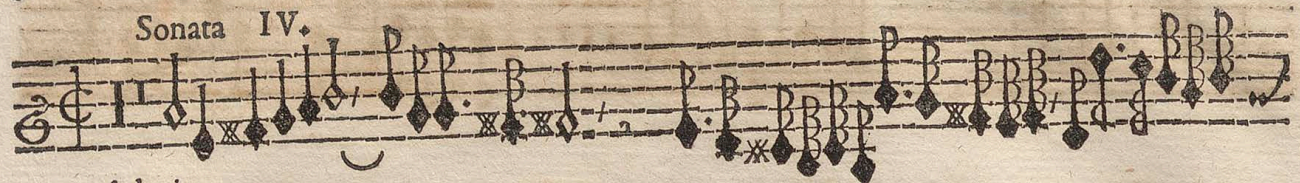 Sonata IV.